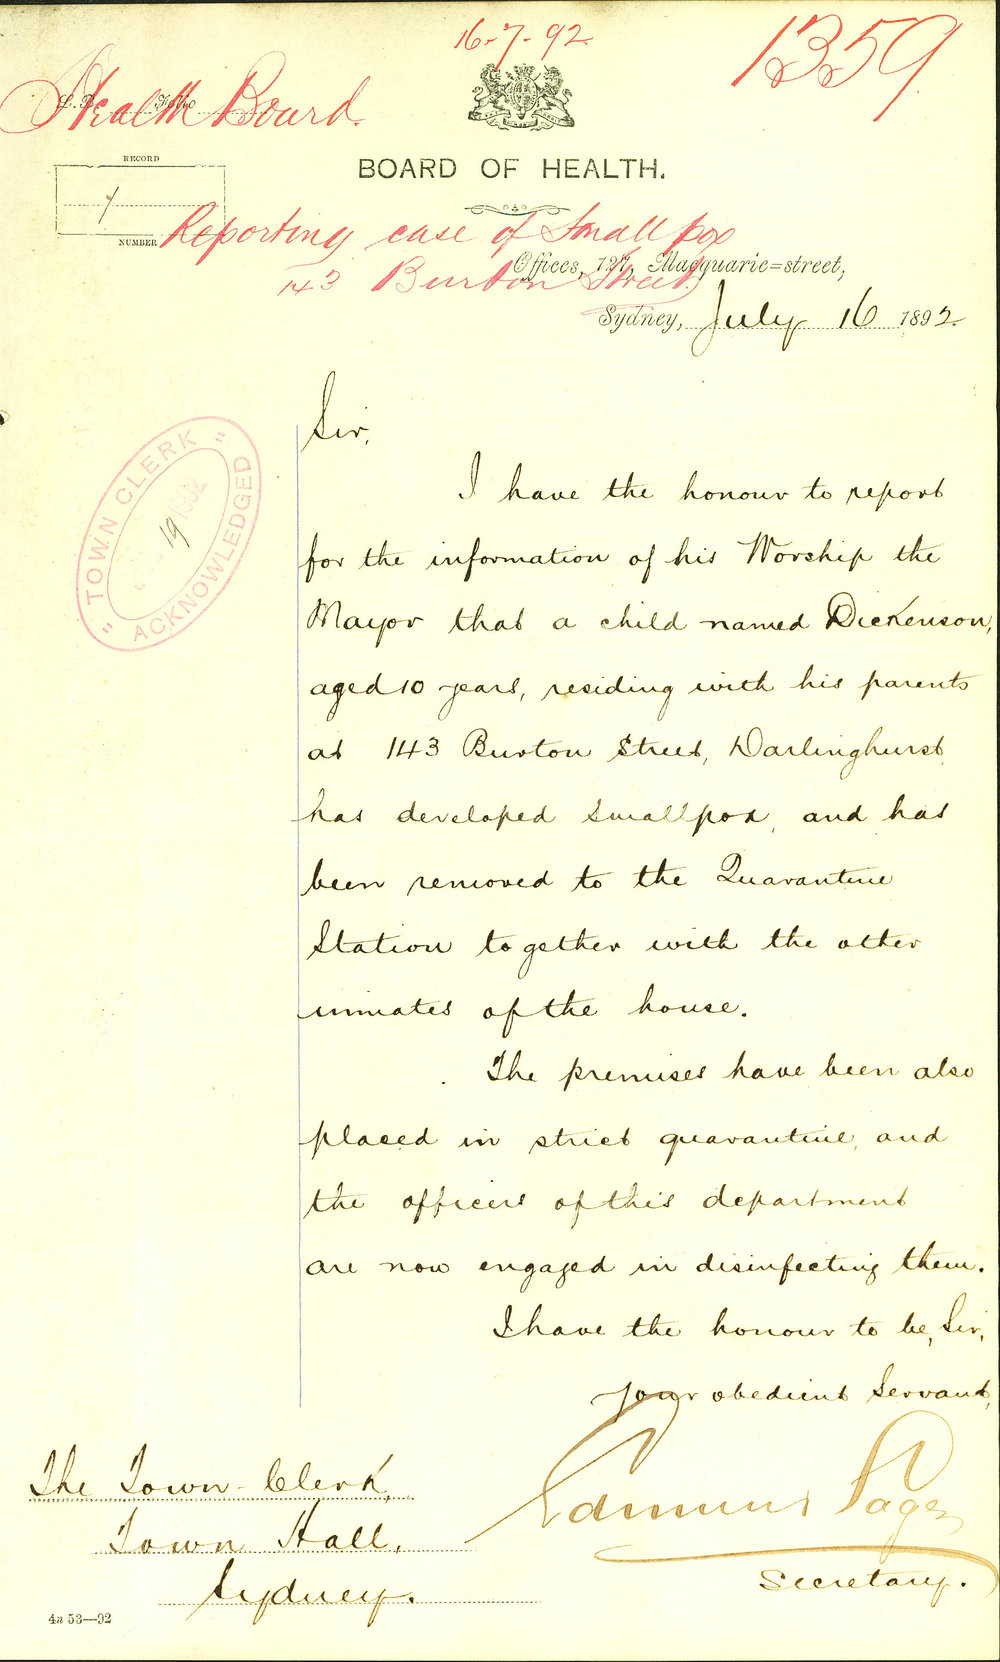 16-7-92
1359
Health Board.
L.B. Folio
RECORD
NUMBER
BOARD OF HEALTH.
Reporting case of Small pox
143 Burton Street
Offices, 127, Macquarie=street,
Sydney, July 16 1892.
"TOWN CLERK"
19 1892
ACKNOWLEDGED
Sir,
I have the honour to report
for the information of his Worship the
Mayor that a child named Dickenson,
aged 10 years, residing with his parents
at 143 Burton Street, Darlinghurst,
has developed Smallpox, and has
been removed to the Quarantine
Station together with the other
inmates of the house.
The premises have been also
placed in strict quarantine, and
the officers of this department
are now engaged in disinfecting them.
I have the honour to be, Sir,
your obedient Servant,
Edmund Sager
Secretary.
The Town Clerk,
Town Hall,
Sydney.
4a 53—92